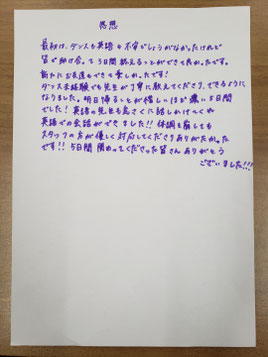 感想
最初は、ダンスも英語も不安でしょうがなかったけれど
皆で助け合って5日間終えることができて良かったです。
新たにお友達もできて楽しかったです!
ダンス未経験でも先生が丁寧に教えてくださり、できるように
なりました。明日帰ることが惜しいほど濃い5日間
でした!英語の先生も気さくに話しかけてくれ
英語での会話ができました!!体調を崩しても
スタッフの方が優しく対応してくださりありがたかった
です!!5日間関わってくださった皆さんありがとう
ございました!!!